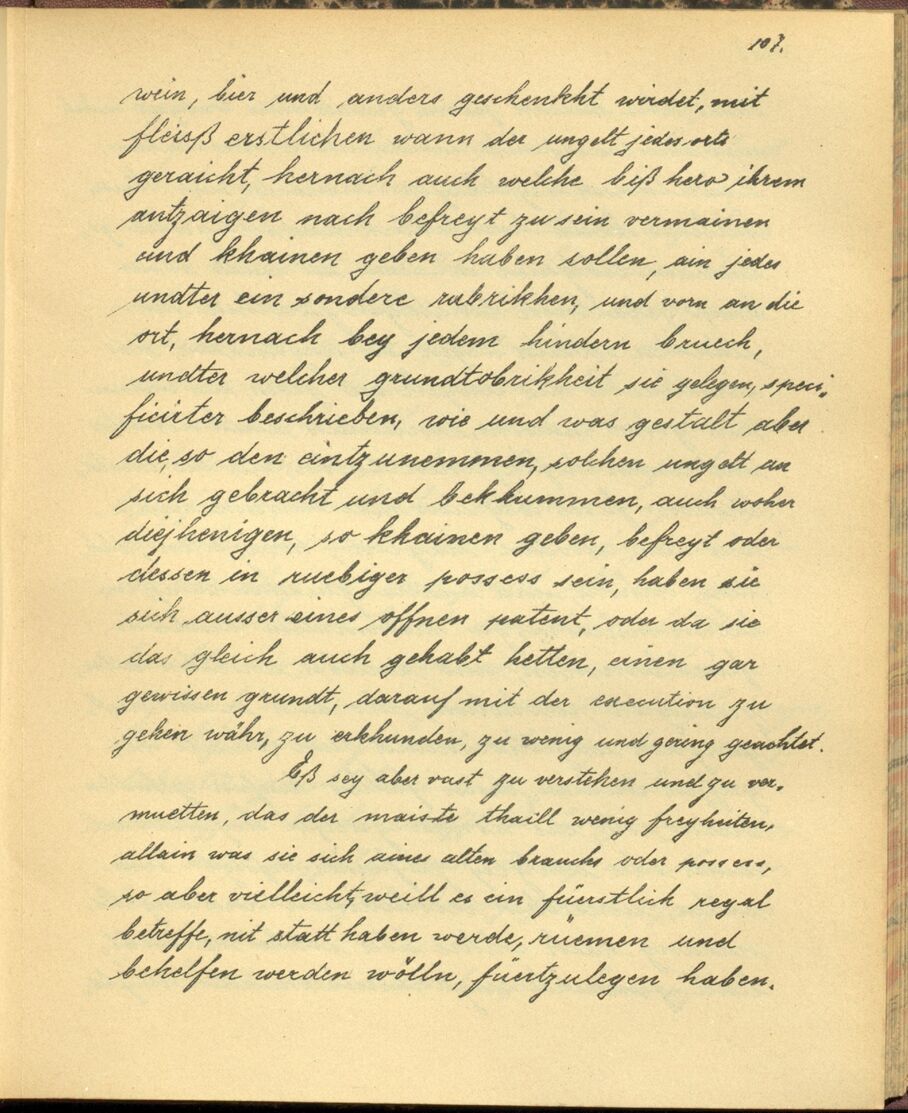 107.
wein, bier und anders geschenkht wirdet, mit
fleisß erstlichen wann der ungelt jedes orts
geraicht, hernach auch welche biß hero ihrem
antzaigen nach befreyt zu sein vermainen
und khainen geben haben sollen, ain jedes
undter ein sondere rubrikhen, und vorn an die
ort, hernach bey jedem hindern bruech,
undter welcher grundtobrikheit sie gelegen, speci-
ficirter beschrieben, wie und was gestalt aber
die, so den eintzunemmen, solchen ungelt an
sich gebracht und bekhummen, auch woher
diejhenigen, so khainen geben, befreyt oder
dessen in ruebiger possess sein, haben sie
sich ausser eines offnen patent, oder da sie
das gleich auch gehabt hetten, einen gar
gewissen grundt, darauf mit der execution zu
gehen währ, zu erkhunden, zu wenig und gering geachtet.
Eß sey aber vast zu verstehen und zu ver-
muetten, das der maiste thaill wenig freyheiten,
allain was sie sich aines alten brauchs oder possess,
so aber vielleicht, weill es ein füerstlich regal
betreffe, nit statt haben werde, rüemen und
behelfen werden wölln, füertzulegen haben.